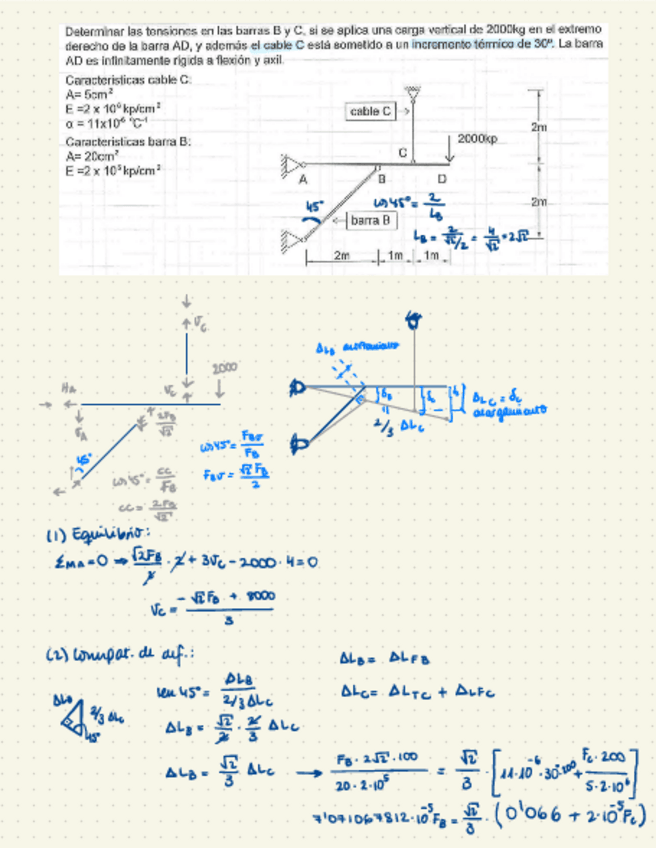 Determinar las tensiones en las barras B y C, si se aplica una carga vertical de 2000kg en el extremo
derecho de la barra AD, y además el cable C está sometido a un incremento térmico de 30º. La barra
AD es infinitamente rígida a flexión y axil.
Características cable C:
A= 5cm²
E =2 x 10⁶ kp/cm²
α = 11x10⁶ ºC⁻¹
Características barra B:
A= 20cm²
E =2 x 10⁵ kp/cm²
cable C
2000kp
C
A
B
D
2m
2m
45°
cos 45° = 2/L_B
barra B
L_B = 2/(√2/2) = 4/√2 = 2√2
2m
1m
1m
V_C
2000
H_A
V_C
V_A
2F_B/√2
45°
cos 45° = CC/F_B
CC = 2F_B/√2
cos 45° = F_BV/F_B
F_BV = √2 F_B/2
ΔL_B acortamiento
δ_B
δ_C
ΔL_C = δ_C
alargamiento
2/3 ΔL_C
(1) Equilibrio:
ΣM_A = 0 → √2F_B/2 · 2 + 3V_C - 2000 · 4 = 0
V_C = (-√2 F_B + 8000)/3
(2) Compat. de def.:
ΔL_B = ΔL_FB
ΔL_B
2/3 ΔL_C
45°
sen 45° = ΔL_B/(2/3 ΔL_C)
ΔL_C = ΔL_TC + ΔL_FC
ΔL_B = √2/2 · 2/3 ΔL_C
ΔL_B = √2/3 ΔL_C → (F_B · 2√2 · 100)/(20 · 2·10⁵) = √2/3 · [11·10⁻⁶ · 30 · 200 + (F_C · 200)/(5 · 2·10⁶)]
7'071067812·10⁻⁵ F_B = √2/3 · (0'066 + 2·10⁻⁵ F_C)